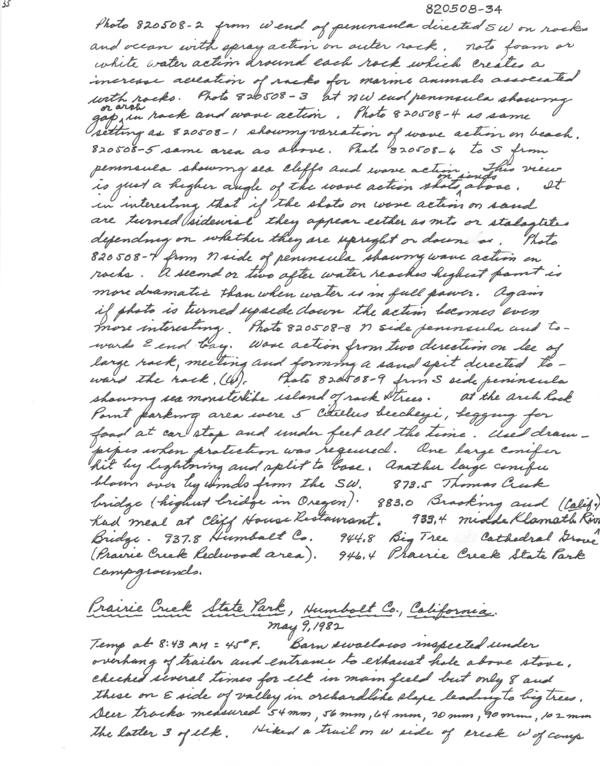 35
820508-34
Photo 820508-2 from W end of peninsula directed SW on rocks
and ocean with spray action on outer rock. note foam or
white water action around each rock which creates a
increase aeration of rocks for marine animals associated
with rocks. Photo 820508-3 at NW end peninsula showing
or arch
gap in rock and wave action. Photo 820508-4 is same
setting as 820508-1 showing variation of wave action on beach.
820508-5 same area as above. Photo 820508-6 to S from
peninsula showing sea cliffs and wave action. This view
on sands
is just a higher angle of the wave action shots above. It
is interesting that if the shots on wave action on sand
are turned sidewise they appear either as mts or stalagtites
depending on whether they are upright or down. Photo
820508-7 from N side of peninsula showing wave action on
rocks. A second or two after water reaches highest point is
more dramatic than when water is in full power. Again
if photo is turned upside down the action becomes even
more interesting. Photo 820508-8 N side peninsula and to-
wards E end bay. Wave action from two direction on lee of
large rock, meeting and forming a sand spit directed to-
ward the rock, (W). Photo 820508-9 from S side peninsula
showing sea monsterlike island of rock & trees. At the Arch Rock
Point parking area were 5 Citellus beecheyi, begging for
food at car stop and under feet all the time. Used drain-
pipes when protection was required. One large conifer
hit by lightning and split to base. Another large conifer
blown over by winds from the SW. 873.5 Thomas Creek
bridge (highest bridge in Oregon). 883.0 Brooking and (Calif.)
had meal at Cliff House Restaurant. 933.4 middle Klamath River
Bridge. 937.8 Humbolt Co. 944.8 Big Tree Cathedral Grove
(Prairie Creek Redwood area). 946.4 Prairie Creek State Park
campgrounds.
Prairie Creek State Park, Humbolt Co., California.
May 9, 1982
Temp at 8:43 AM = 45°F. Barn swallows inspected under
overhang of trailer and entrance to exhaust hole above stove.
checked several times for elk in main field but only 8 and
these on E side of valley in orchardlike slope leading to big trees.
Deer tracks measured 54mm, 56mm, 64mm, 70mm, 90mm, 102mm
the latter 3 of elk. Hiked a trail on W side of creek W of camp